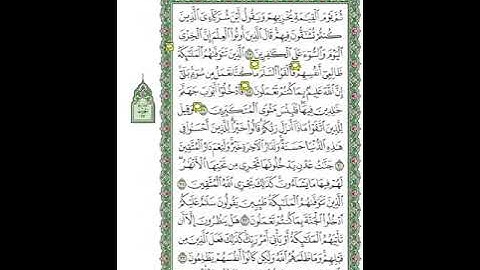 ثُمَّ يَوْمَ ٱلْقِيَٰمَةِ يُخْزِيهِمْ وَيَقُولُ أَيْنَ شُرَكَآءِىَ ٱلَّذِينَ
كُنتُمْ تُشَٰٓقُّونَ فِيهِمْ قَالَ ٱلَّذِينَ أُوتُوا۟ ٱلْعِلْمَ إِنَّ ٱلْخِزْىَ
ٱلْيَوْمَ وَٱلسُّوٓءَ عَلَى ٱلْكَٰفِرِينَ ٱلَّذِينَ تَتَوَفَّىٰهُمُ ٱلْمَلَٰٓئِكَةُ
ظَالِمِىٓ أَنفُسِهِمْ فَأَلْقَوُا۟ ٱلسَّلَمَ مَا كُنَّا نَعْمَلُ مِن سُوٓءٍۭ بَلَىٰٓ
إِنَّ ٱللَّهَ عَلِيمٌۢ بِمَا كُنتُمْ تَعْمَلُونَ فَٱدْخُلُوٓا۟ أَبْوَٰبَ جَهَنَّمَ
خَٰلِدِينَ فِيهَا فَلَبِئْسَ مَثْوَى ٱلْمُتَكَبِّرِينَ وَقِيلَ
لِلَّذِينَ ٱتَّقَوْا۟ مَاذَآ أَنزَلَ رَبُّكُمْ قَالُوا۟ خَيْرًا لِّلَّذِينَ أَحْسَنُوا۟ فِى
هَٰذِهِ ٱلدُّنْيَا حَسَنَةٌ وَلَدَارُ ٱلْءَاخِرَةِ خَيْرٌ وَلَنِعْمَ دَارُ ٱلْمُتَّقِينَ
جَنَّٰتُ عَدْنٍ يَدْخُلُونَهَا تَجْرِى مِن تَحْتِهَا ٱلْأَنْهَٰرُ
لَهُمْ فِيهَا مَا يَشَآءُونَ كَذَٰلِكَ يَجْزِى ٱللَّهُ ٱلْمُتَّقِينَ
ٱلَّذِينَ تَتَوَفَّىٰهُمُ ٱلْمَلَٰٓئِكَةُ طَيِّبِينَ يَقُولُونَ سَلَٰمٌ عَلَيْكُمُ
ٱدْخُلُوا۟ ٱلْجَنَّةَ بِمَا كُنتُمْ تَعْمَلُونَ هَلْ يَنظُرُونَ إِلَّآ أَن
تَأْتِيَهُمُ ٱلْمَلَٰٓئِكَةُ أَوْ يَأْتِىَ أَمْرُ رَبِّكَ كَذَٰلِكَ فَعَلَ ٱلَّذِينَ مِن
قَبْلِهِمْ وَمَا ظَلَمَهُمُ ٱللَّهُ وَلَٰكِن كَانُوٓا۟ أَنفُسَهُمْ يَظْلِمُونَ